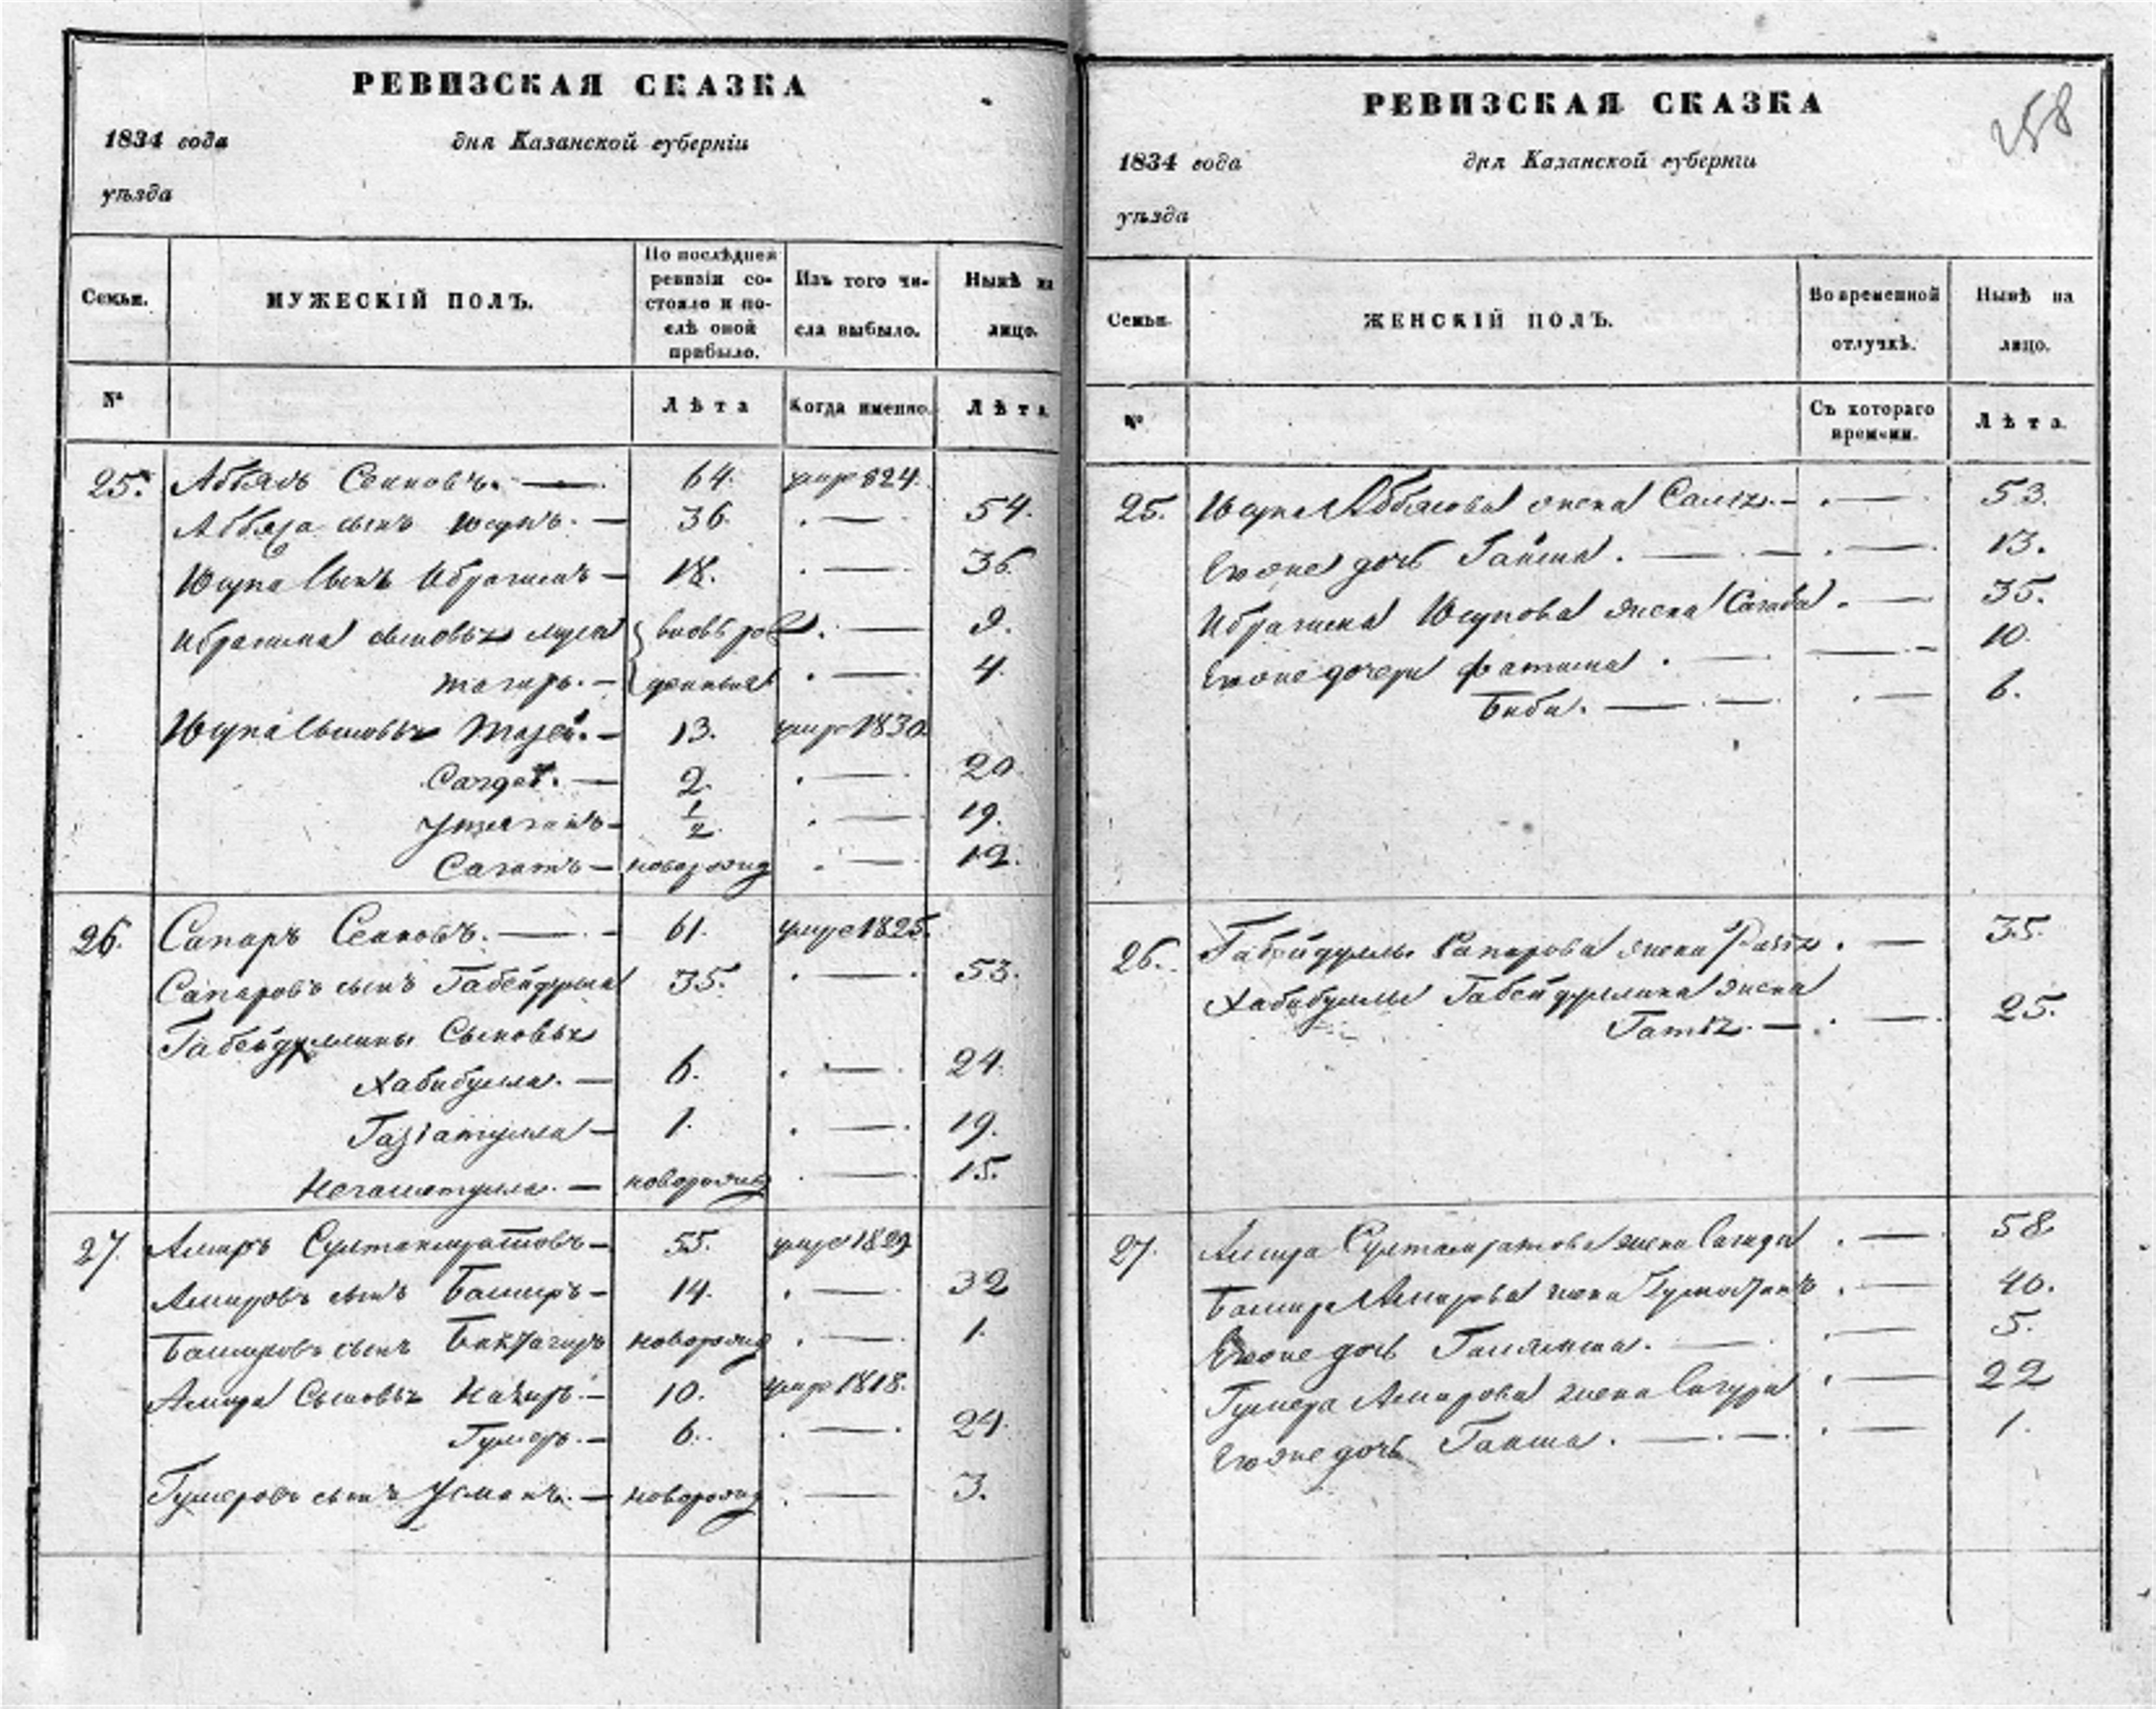 РЕВИЗСКАЯ СКАЗКА
1834 года дня Казанской губерніи
уѣзда
Семьи. МУЖЕСКІЙ ПОЛЪ. По послѣдней ревизіи состояло и послѣ оной прибыло. Изъ того числа выбыло. Нынѣ на лицо.
№ Лѣта Когда именно. Лѣта
25. Аббясъ Сеиновъ. — 64. умре 824.
Аббяса сынъ Юсупъ. — 36. — 54.
Юсупа сынъ Ибрагимъ — 18. — 36.
Ибрагима сыновья Муса вновь рож — 9.
Тагиръ. — денныя — 4.
Юсупа сыновья 13. умре 1830.
Сагдет. — 2. — 20.
1/2 — 19.
Сагатъ — новорожд — 12.
26. Сапаръ Сеиновъ. — 61. умре 1825.
Сапаровъ сынъ Габейдулла 35. — 53.
Габейдуллины Сыновья
Хабибулла. — 6. — 24.
Газіатулла — 1. — 19.
Негаметулла. — новорожд — 15.
27. Амиръ Султанмратовъ — 55. умре 1829
Амировъ сынъ Баширъ — 14. — 32
Башировъ сынъ Бикзагиръ новорожд — 1.
Амира Сыновья Назиръ. — 10. умре 1818.
Гумеръ. — 6. — 24.
Гумеровъ сынъ Усманъ. — новорожд — 3.
РЕВИЗСКАЯ СКАЗКА
258
1834 года дня Казанской губерніи
уѣзда
Семьи. ЖЕНСКІЙ ПОЛЪ. Во временной отлучкѣ. Нынѣ на лицо.
№ Съ котораго времени. Лѣта.
25. Юсупа Аббясова жена — 53.
Ево же дочь Гайша. — 13.
Ибрагима Юсупова жена — 35.
Ево же дочери Фатима. — 10.
Биби. — 6.
26. Габейдуллы Сапарова жена — 35.
Хабибуллы Габейдуллина жена
— 25.
27. Амира Султанмратова жена Сагида — 58.
Башира Амирова жена — 40.
Ево же дочь — 5.
Гумера Амирова жена — 22
Ево же дочь Гайша. — 1.